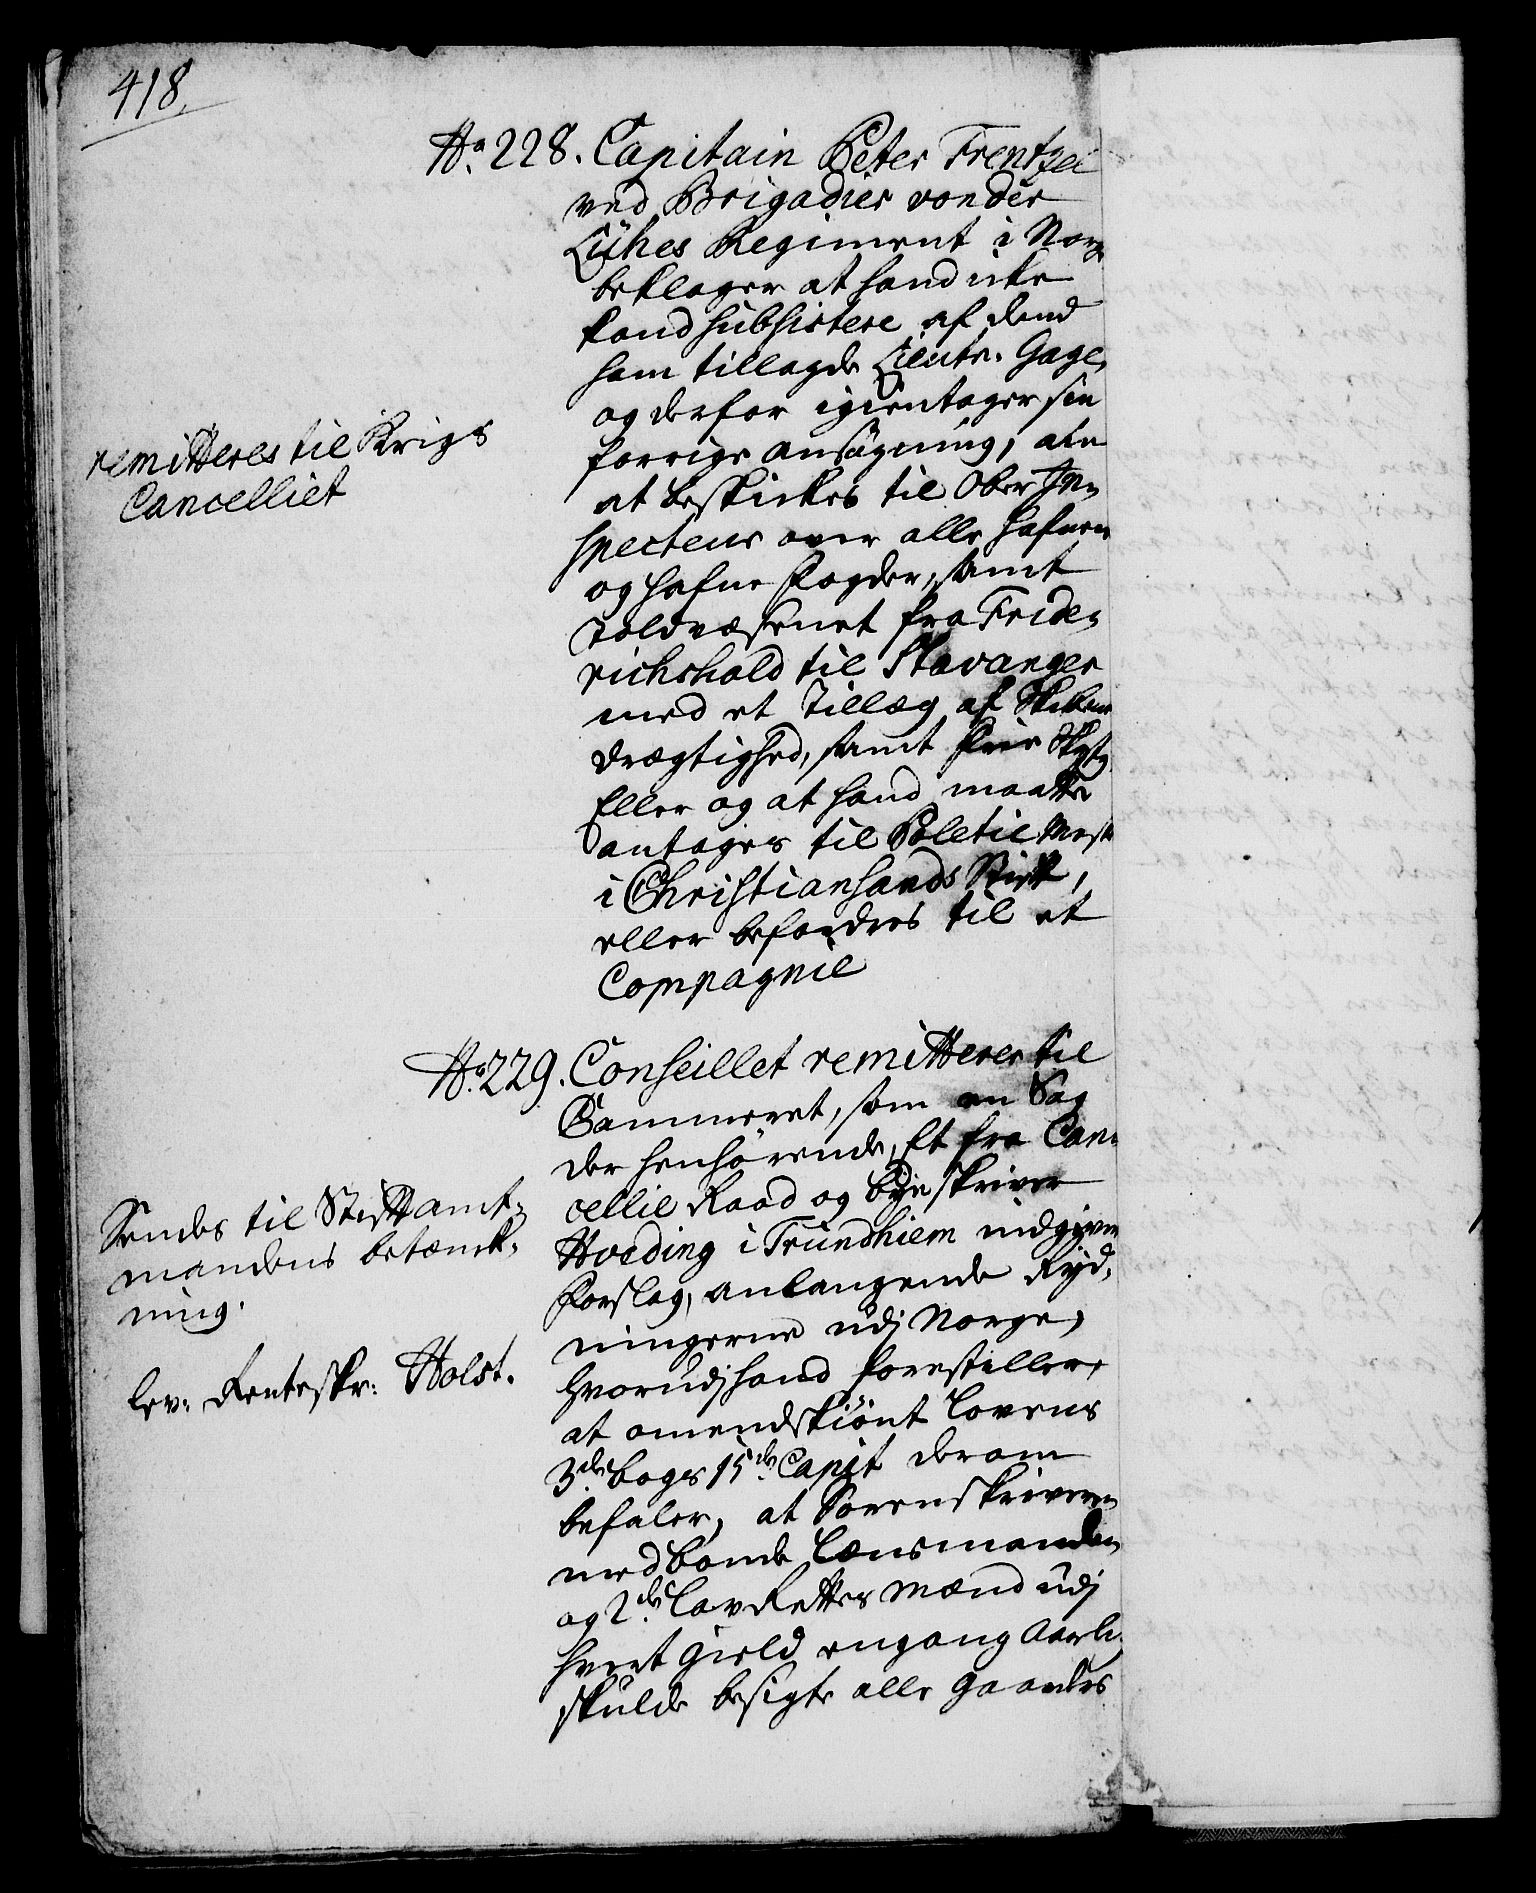 418.
No. 228. Capitain Peter Frentzel
ved Brigadier von der
Lühes Regiment i Norge
beklager at hand icke
kand subsistere af dend
ham tillagde Lieutn. Gage,
og derfor igientager sin
forrige ansøgning, aln
at beskickes til Ober In-
specteur over alle hafner
og hafne fogder, samt
Toldvæsenet fra Fride-
richshald til Stavanger
med et Tillæg af Skibene
drægtighed, samt frie Skyds
Eller og at hand maatte
antages til Politie Mest
i Christiansands Stift,
eller befordres til et
Compagnie
remitteres til Krigs
Cancelliet
No. 229. Conseillet remitterer til
Cammeret, som en Sag
der henhørende, Et fra Can-
cellie Raad og Bye skriver
Hveding i Trundhiem indgiven
forslag, anlangende Ryd-
ningerne udj Norge,
hvorudj hand forestiller,
at omendskiønt Lovens
3de bogs 15de Capit derom
befaler, at Sorenskriveren
med bonde Lænsmanden
og 2de LavRettes Mænd udj
hvert gield engang Aarl:
skulde besigte alle gaardes
Sendes til Stiftamt-
mandens betænk-
ning.
lev: Renteskr: Holst.